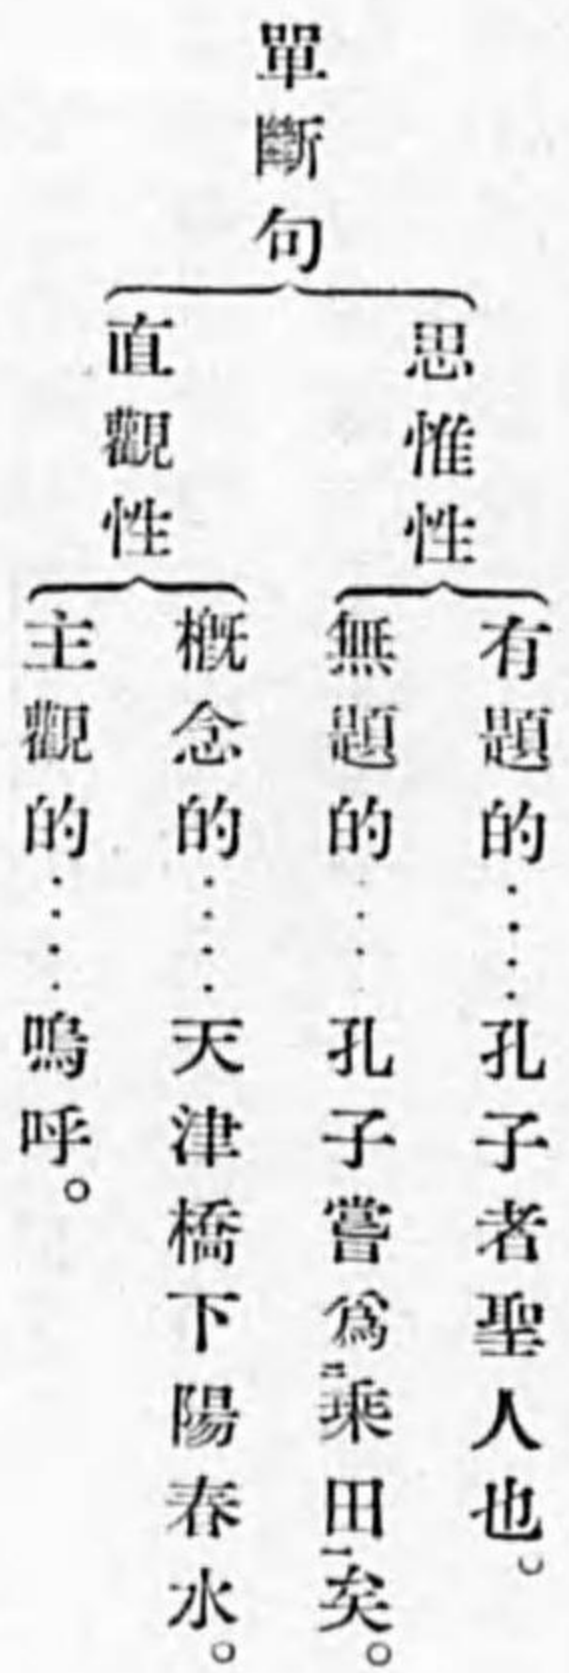 單斷句
思惟性
有題的……孔子者聖人也。
無題的……孔子嘗爲㆓乘田㆒矣。
直觀性
槪念的……天津橋下陽春水。
主觀的……嗚呼。